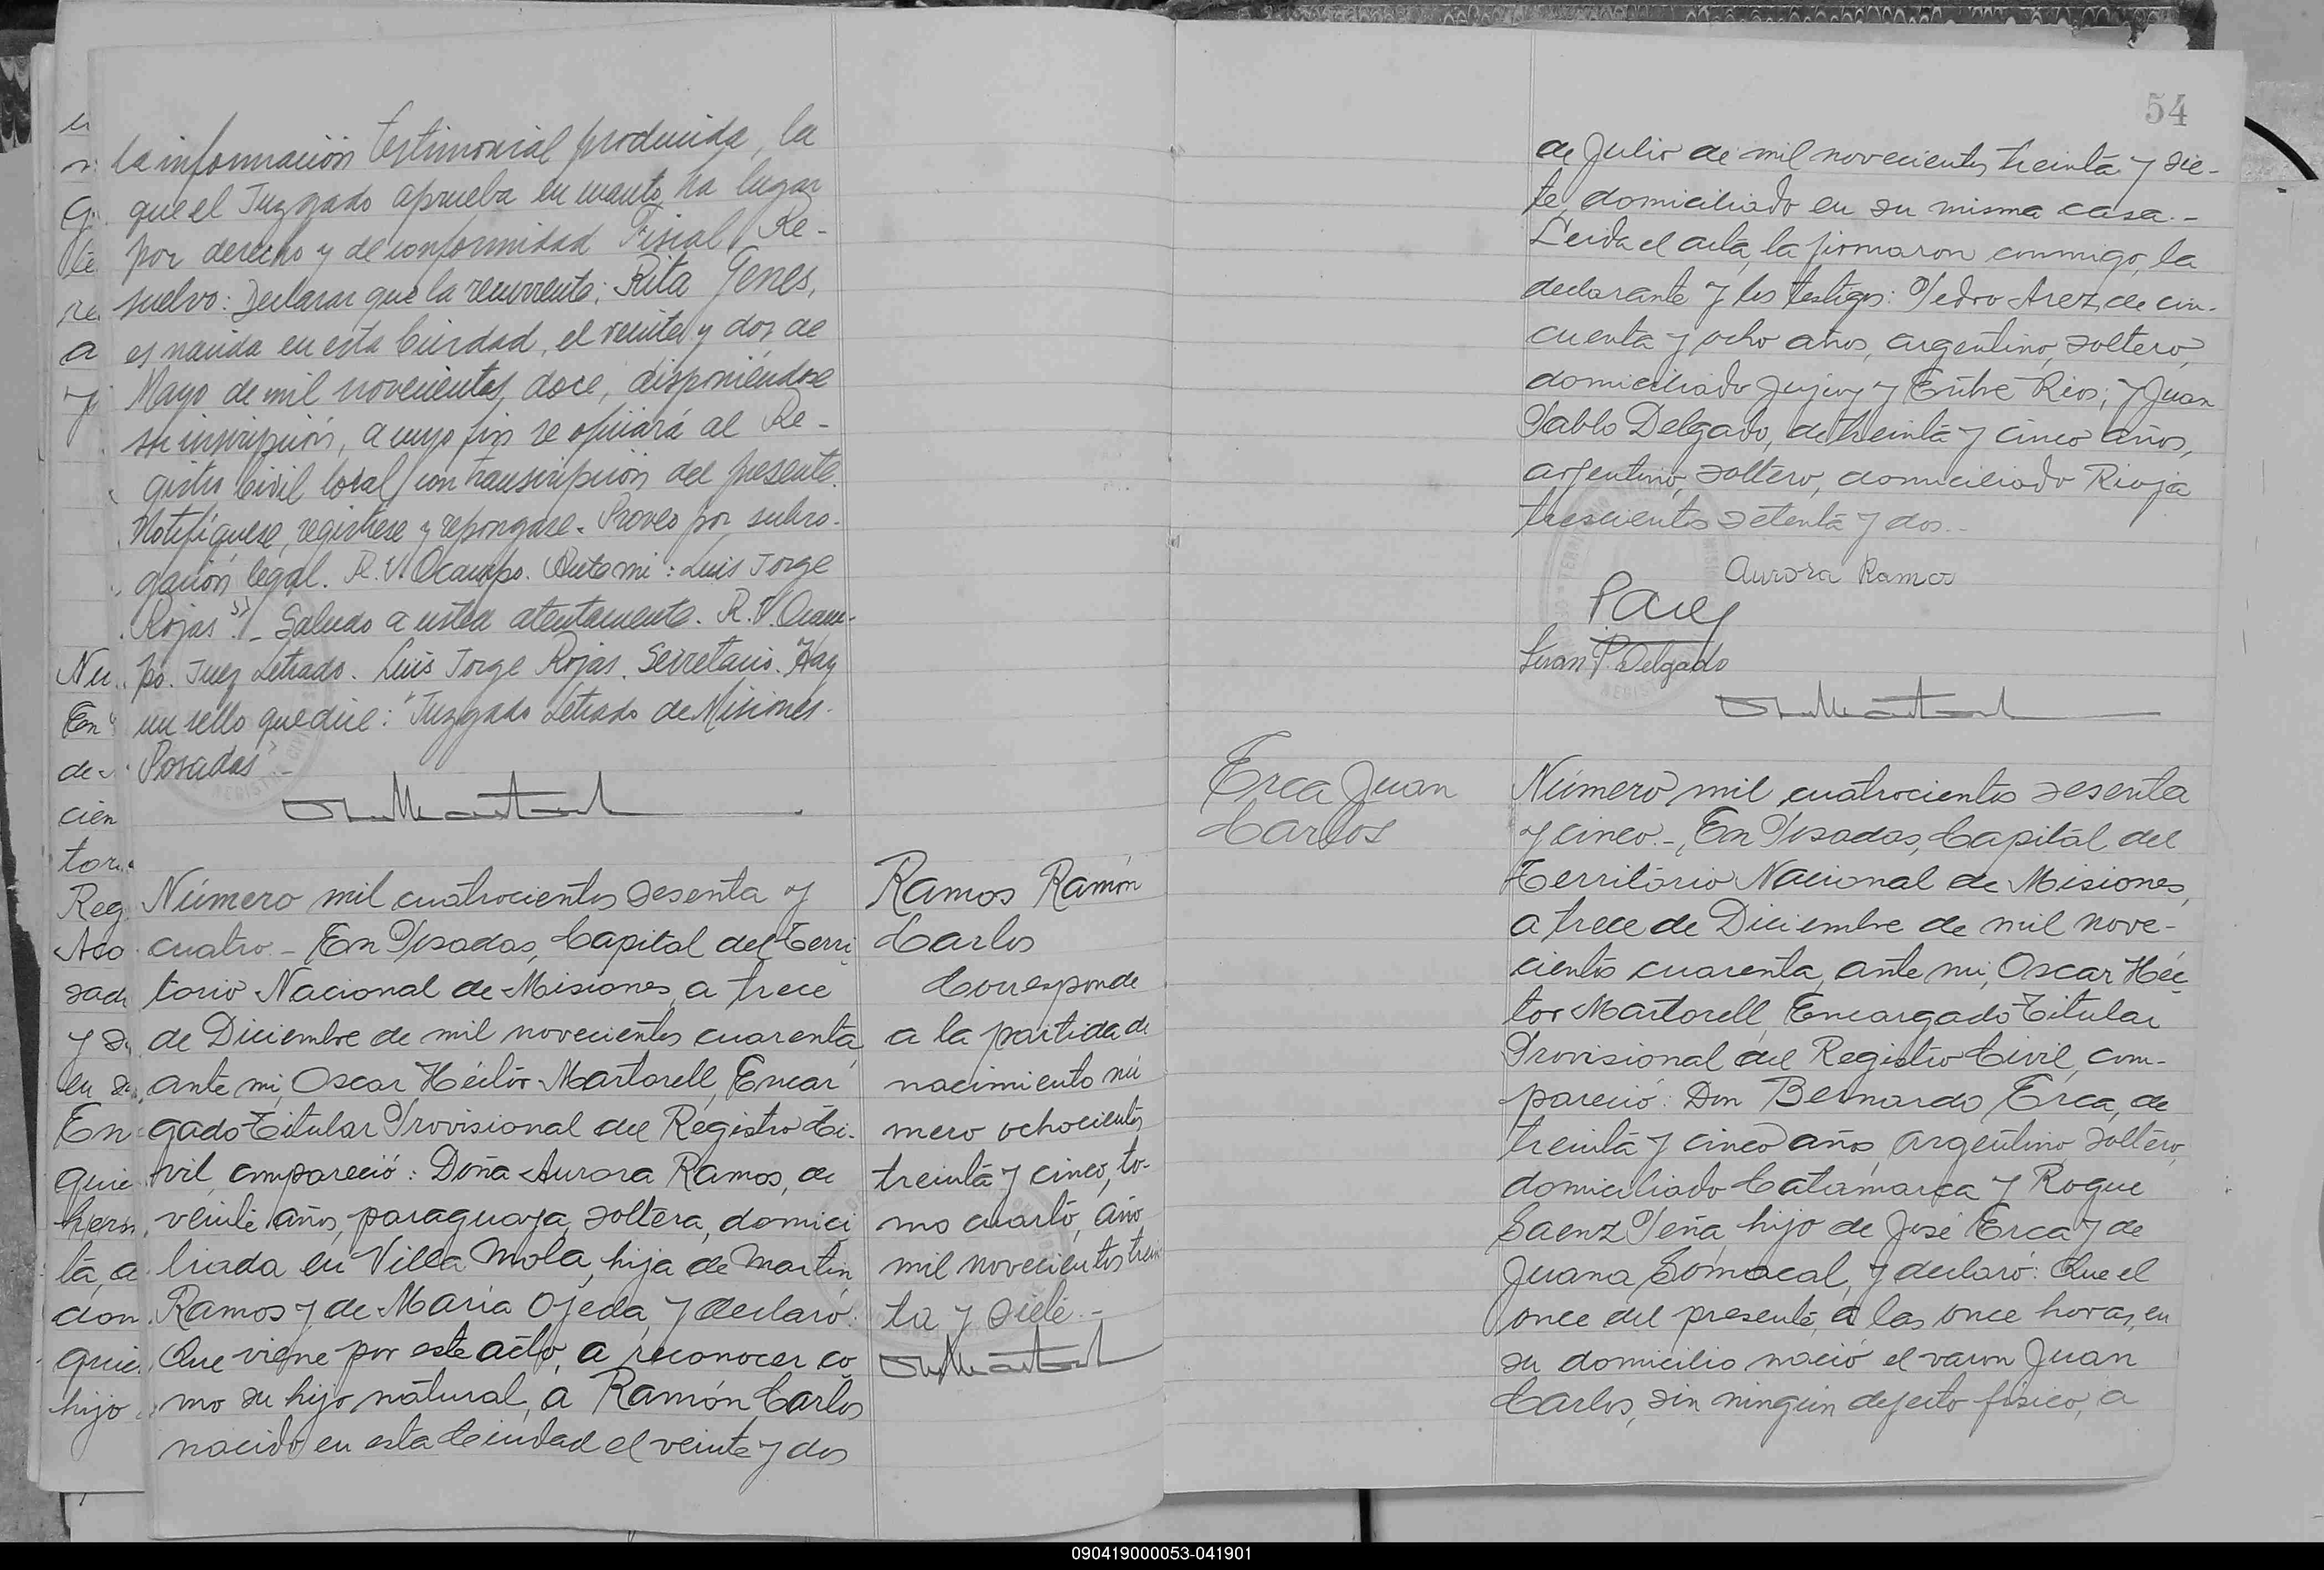 la información testimonial producida, la
que el Juzgado aprueba en cuanto ha lugar
por derecho y de conformidad Fiscal, Re-
suelvo: Declarar que la recurrente: Rita Genes,
es nacida en esta Ciudad, el veinte y dos de
Mayo de mil novecientos doce, disponiéndose
su inscripción, a cuyo fin se oficiará al Re-
gistro Civil local con transcripción del presente.
Notifíquese, regístrese y repongase. Proveo por subro-
gación legal. R. V. Ocampo. Ante mi: Luis Jorge
Rojas".- Saludo a usted atentamente. R. V. Ocam-
po. Juez Letrado. Luis Jorge Rojas. Secretario. Hay
un sello que dice: "Juzgado Letrado de Misiones.
Posadas".-
Número mil cuatrocientos sesenta y
cuatro.- En Posadas, Capital del Terri
torio Nacional de Misiones, a trece
de Diciembre de mil novecientos cuarenta,
ante mi, Oscar Héctor Martorell, Encar
gado Titular Provisional del Registro Ci-
vil, compareció: Doña Aurora Ramos, de
veinte años, paraguaya, soltera, domici
liada en Villa Mola, hija de Martin
Ramos y de Maria Ojeda, y declaró:
Que viene por este acto, a reconocer co
mo su hijo natural, a Ramón Carlos
nacido en esta Ciudad el veinte y dos
Ramos Ramón
Carlos
Corresponde
a la partida de
nacimiento nú
mero ochocientos
treinta y cinco, to-
mo cuarto, año
mil novecientos trein
ta y siete.-
54
de Julio de mil novecientos treinta y sie-
te, domiciliado en su misma casa.-
Leida el acta, la firmaron conmigo, la
declarante y los testigos: Pedro Arez, de cin-
cuenta y ocho años, argentino, soltero,
domiciliado Jujuy y Entre Rios; y Juan
Pablo Delgado, de treinta y cinco años,
argentino, soltero, domiciliado Rioja
trescientos setenta y dos.-
Aurora Ramos
PArez
Juan P. Delgado
Erca Juan
Carlos
Número mil cuatrocientos sesenta
y cinco.- En Posadas, Capital del
Territorio Nacional de Misiones,
a trece de Diciembre de mil nove-
cientos cuarenta, ante mi, Oscar Héc
tor Martorell, Encargado Titular
Provisional del Registro Civil, com-
pareció: Don Bernardo Erca, de
treinta y cinco años, argentino soltero,
domiciliado Catamarca y Roque
Saenz Peña, hijo de José Erca y de
Juana Somacal, y declaró: Que el
once del presente, a las once horas, en
su domicilio nació el varon Juan
Carlos, sin ningún defecto fisico, a
090419000053-041901